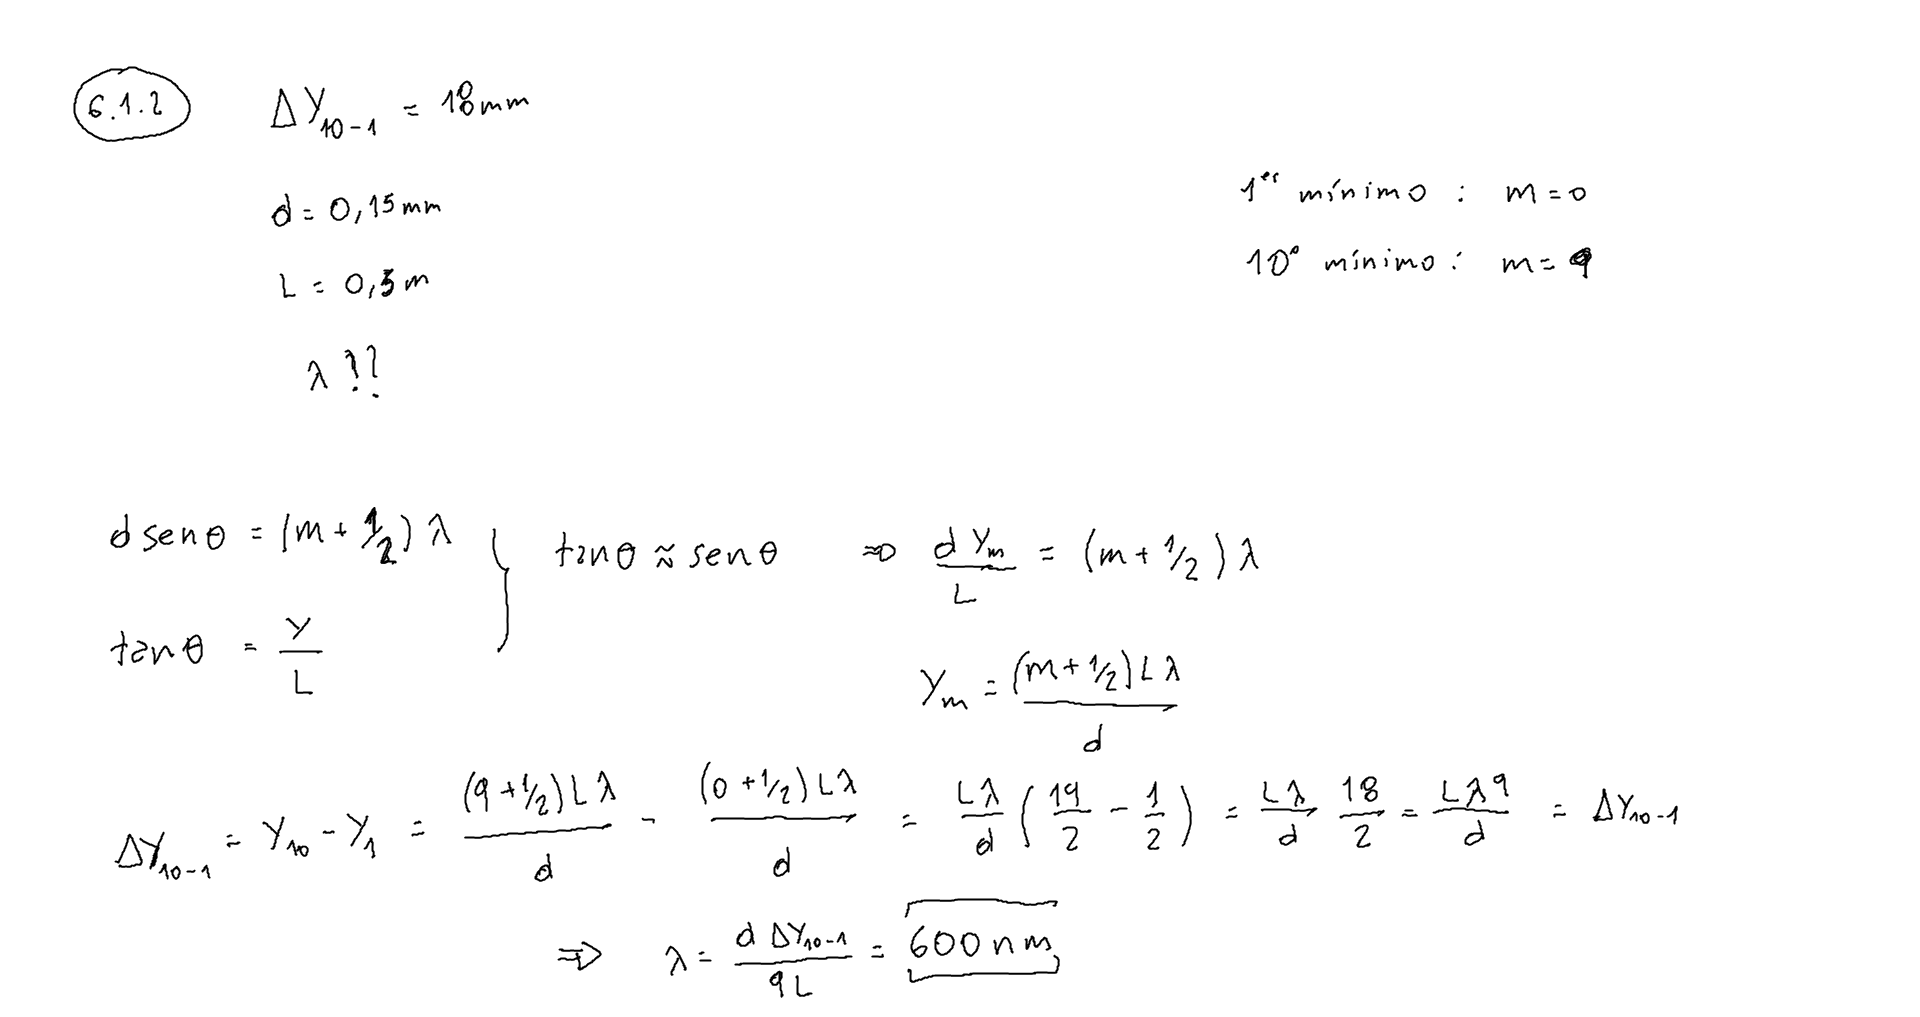 6.1.2 ΔY₁₀₋₁ = 18mm
d = 0,15mm
1er mínimo : m = 0
L = 0,5m
10º mínimo : m = 9
λ ??
d senθ = (m + 1/2) λ } tanθ ≈ senθ ⇒ d Yₘ / L = (m + 1/2) λ
tanθ = Y / L
Yₘ = (m + 1/2) L λ / d
ΔY₁₀₋₁ = Y₁₀ - Y₁ = (9 + 1/2) L λ / d - (0 + 1/2) L λ / d = Lλ / d ( 19/2 - 1/2 ) = Lλ / d 18/2 = Lλ9 / d = ΔY₁₀₋₁
⇒ λ = d ΔY₁₀₋₁ / 9L = 600 nm